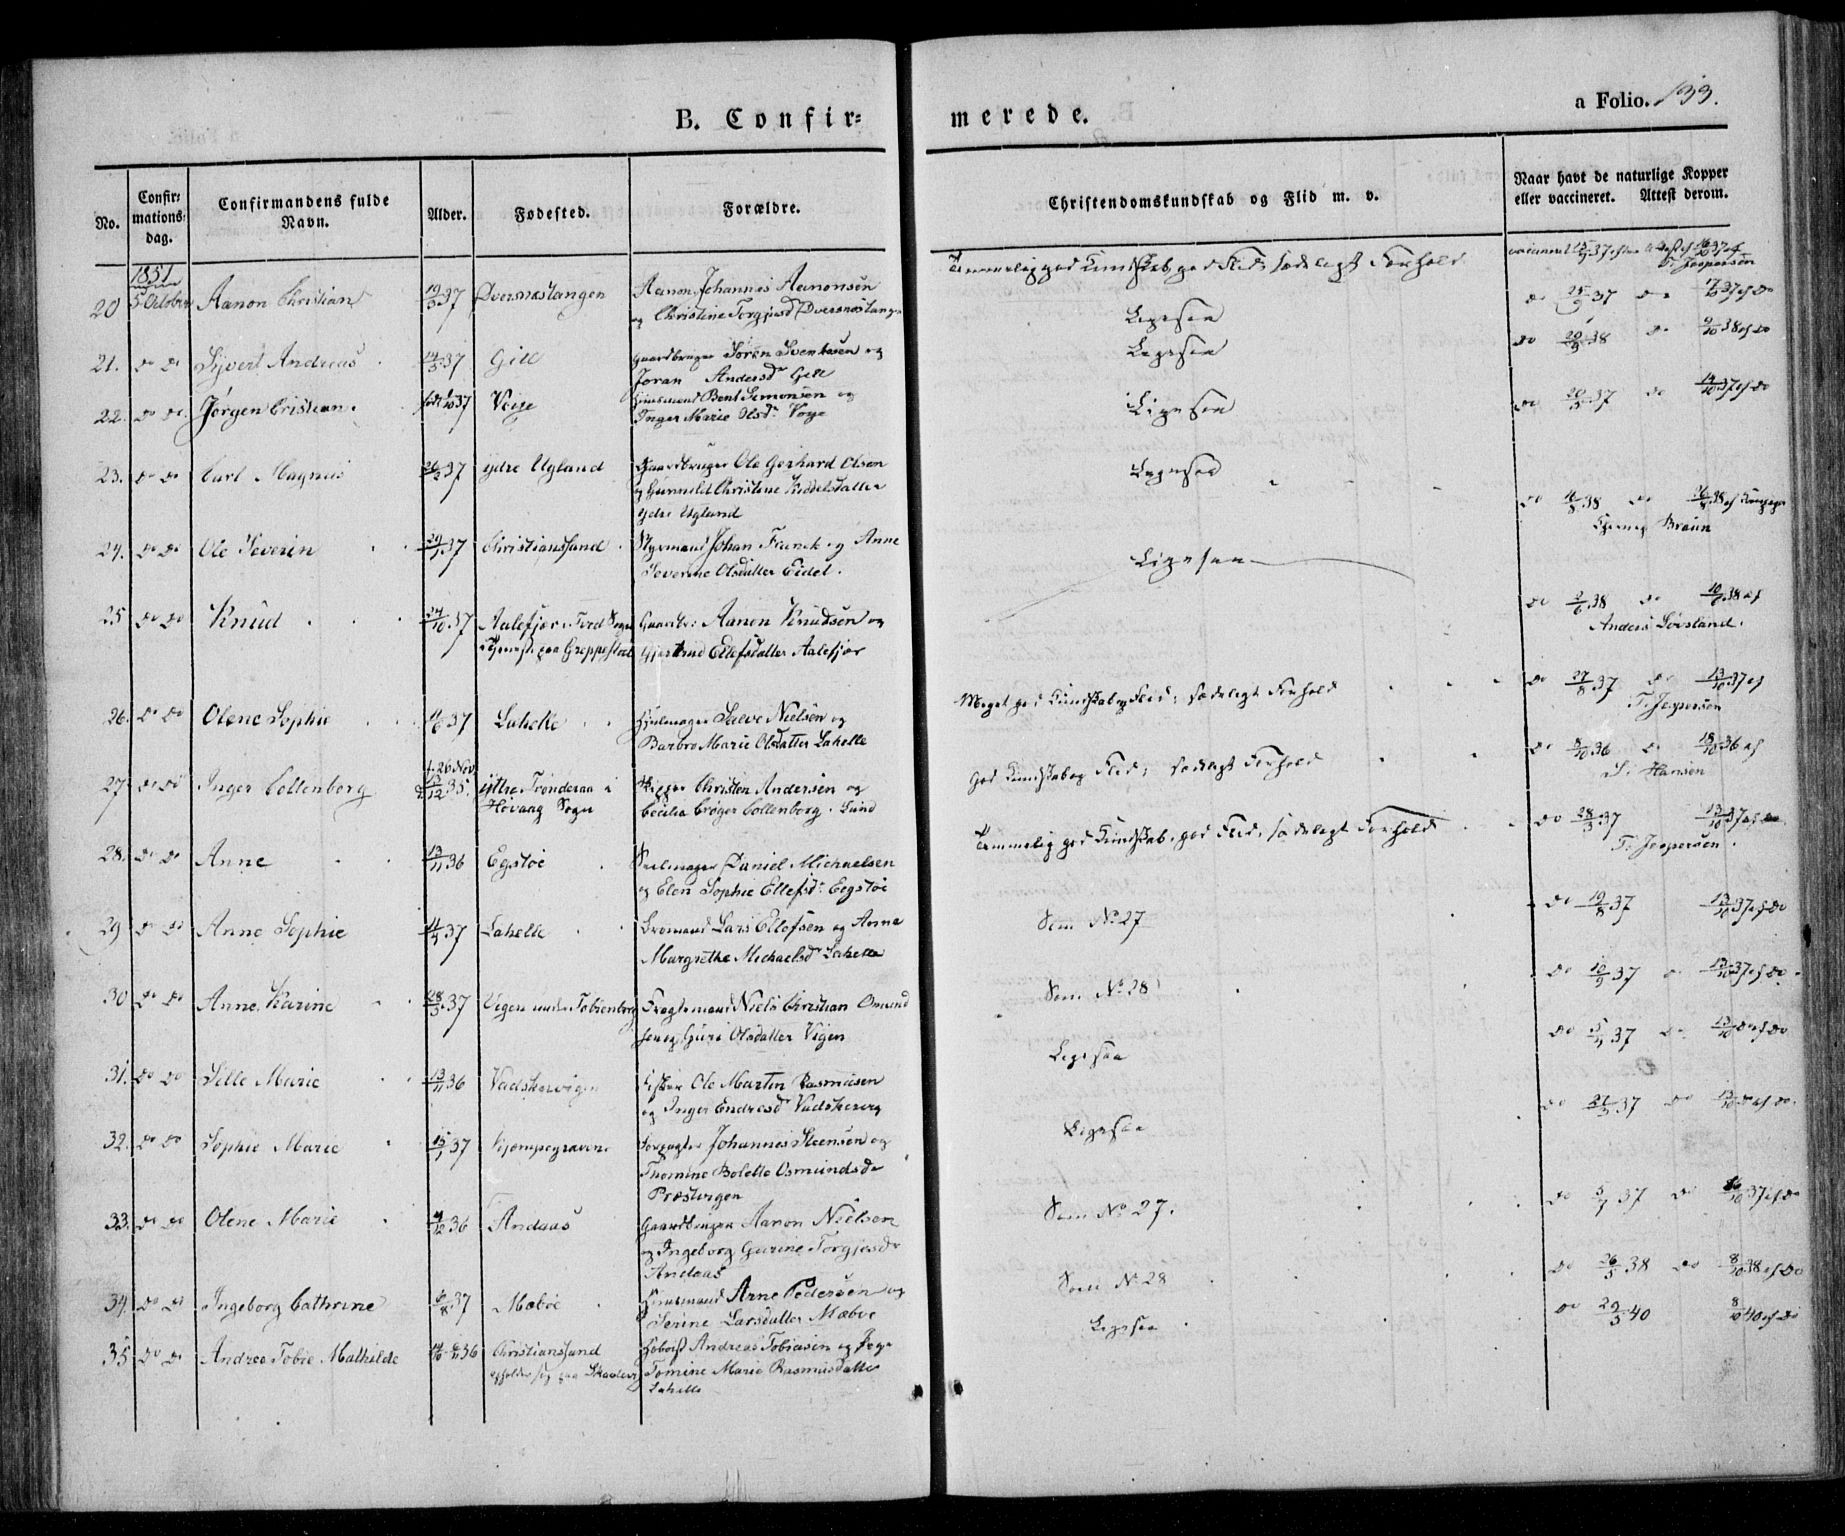 a Folio. 133.
B. Confir=
merede.
No. Confirmations-dag. Confirmandens fulde Navn. Alder. Fødested. Forældre. Christendomskundskab og Flid m. v. Naar havt de naturlige Kopper eller vaccineret. Attest derom.
1851
20 5 October Aanon Christian 19/3 37 Dversnæstangen Aanon Johannes Aanonsen
og Christine Torgjusd Dversnæstangen
Temmelig god Kundskab, god Flid, sædeligt Forhold
T. Jespersen
21. do do Syvert Andreas 14/3 37 Gill Gaardbruger Søren Svenhsen og
Joran Andersd Gill
Ligesaa
22. do do Jørgen Cristian 37 Voge Huusmand Bent Simonsen og
Inger Marie Olsd. Voge
Ligesaa
23. do do Carl Magnus 37 Ydre Ugland Gaardbruger Ole Gerhard Olsen
og Gunnild Christine Keddelsdatter
Ydre Ugland
Ligesaa
24. do do Ole Severin 37 Christianssand Styrmand Johan Franck og Anne
Severine Olsdatter Eidet.
Ligesaa
Braun
25 do do Knud 24/10 37 Aalefjær i Tved Sogn Gaardbr: Aanon Knudsen og
Tjeneste paa Greppestøl Gjertrud Ellefsdatter Aalefjær
Anders Sørsland.
26. do do Olene Sophie 37 Lahelle Hjulmager Salve Nielsen og
Barbro Marie Olsdatter Lahelle
Meget god Kundskab og Flid; sædeligt Forhold
do 27/8 37 do 13/10 37 af
T. Jespersen
27 do do Inger Collenborg 26 Nov. 35. Ytre Trønderaa i Skipper Christen Andersen og
Høvaag Sogn Cecilia Crøger Collenborg. Lund
God Kundskab og Flid; sædeligt Forhold
do 8/10 36 do 18/10 36 af
S. Hansen
28. do do Anne 13/11 36 Egstøe Seilmager Daniel Michaelsen
og Elen Sophie Ellefsd: Eegstøe
Temmelig god Kundskab, god Flid, sædeligt Forhold
do 28/3 37 13/10 37 af
T. Jespersen.
29 do do Anne Sophie 37 Lahelle Lars Ellefsen og Anne
Margrethe Michaelsd Lahelle
Som No 27
do 19/8 37 13/10 37 af do
30 do do Anne Karine 28/3 37 Vigen under Tobienborg Fragtemand Niels Christian Osmund
sen og Guri Olsdatter Vigen
Som No 28
do 37 do 13/10 37 af do
31. do do Sille Marie 13/11 36 Vadskervigen Fisker Ole Martin Rasmusen
og Inger Endresd Vadskervig
Ligesaa
do 37 do 13/10 do af do
32. do do Sophie Marie 37 Kjempegraven Johannes Steensen og
Thomine Bolette Osmundsd
Præstvigen
Ligesaa
do 21/3 37 do 13/10 do af do.
33. do do Olene Marie 36 Andaas Gaardbruger Aanon Nielsen
og Ingeborg Gurine Torgjusd
Andaas
Som No 27.
do 37 do 37 af do
34. do do Ingeborg Cathrine 6/8 37 Mæbøe Huusmand Arne Pedersen og
Serine Larsdatter Mæbøe
Som No 28
do 26/5 38 do 8/10 38 af do
35 do do Andrea Tobie Mathilde 36 Christianssand Hoboist Andreas Tobiasen og
opholder sig paa Skaalevig Tomine Marie Rasmusdatter
Lahelle
Ligesaa
do 29/5 40 8/10 40 af do